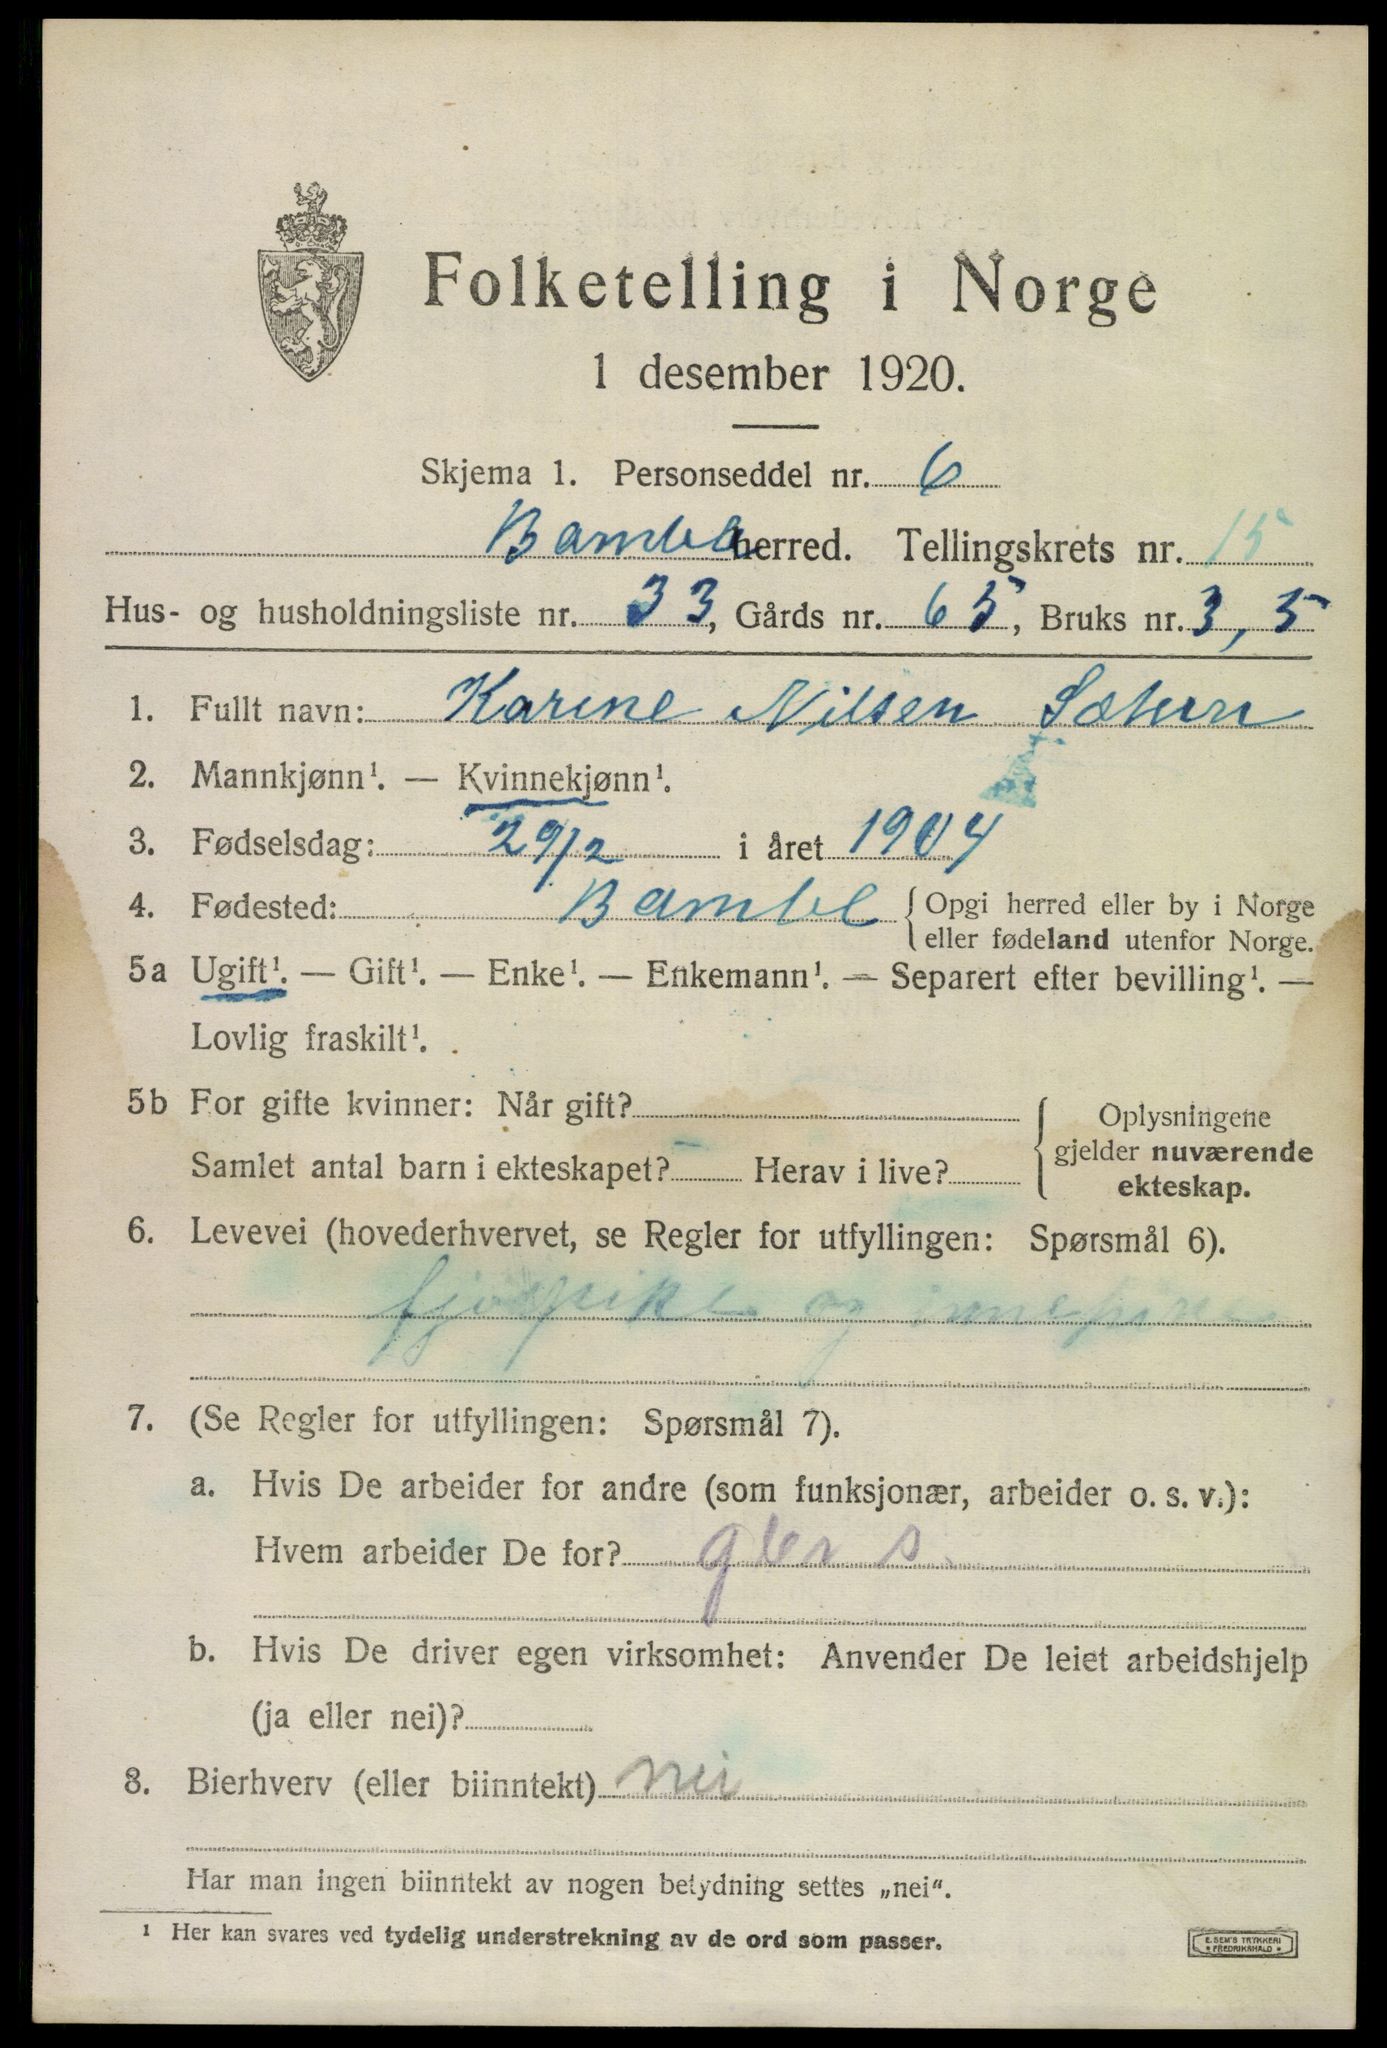 Folketelling i Norge
1 desember 1920.
Skjema 1. Personseddel nr. 6
Bamble herred. Tellingskrets nr. 15
Hus- og husholdningsliste nr. 33, Gårds nr. 65, Bruks nr. 3, 5
1. Fullt navn: Karine Nilsen
2. Mannkjønn¹. — Kvinnekjønn¹.
3. Fødselsdag: 29/2 i året 1904
4. Fødested: Bamble { Opgi herred eller by i Norge
eller fødeland utenfor Norge.
5a Ugift¹. — Gift¹. — Enke¹. — Enkemann¹. — Separert efter bevilling¹. —
Lovlig fraskilt¹.
5b For gifte kvinner: Når gift? { Oplysningene
gjelder nuværende
Samlet antal barn i ekteskapet? Herav i live?
ekteskap.
6. Levevei (hovederhvervet, se Regler for utfyllingen: Spørsmål 6).
fjøspike og innepike
7. (Se Regler for utfyllingen: Spørsmål 7).
a. Hvis De arbeider for andre (som funksjonær, arbeider o. s. v.):
Hvem arbeider De for? gbr s.
b. Hvis De driver egen virksomhet: Anvender De leiet arbeidshjelp
(ja eller nei)?
8. Bierhverv (eller biinntekt) nei
Har man ingen biinntekt av nogen betydning settes „nei“.
¹ Her kan svares ved tydelig understrekning av de ord som passer.
E. SEM'S TRYKKERI
FREDRIKSHALD